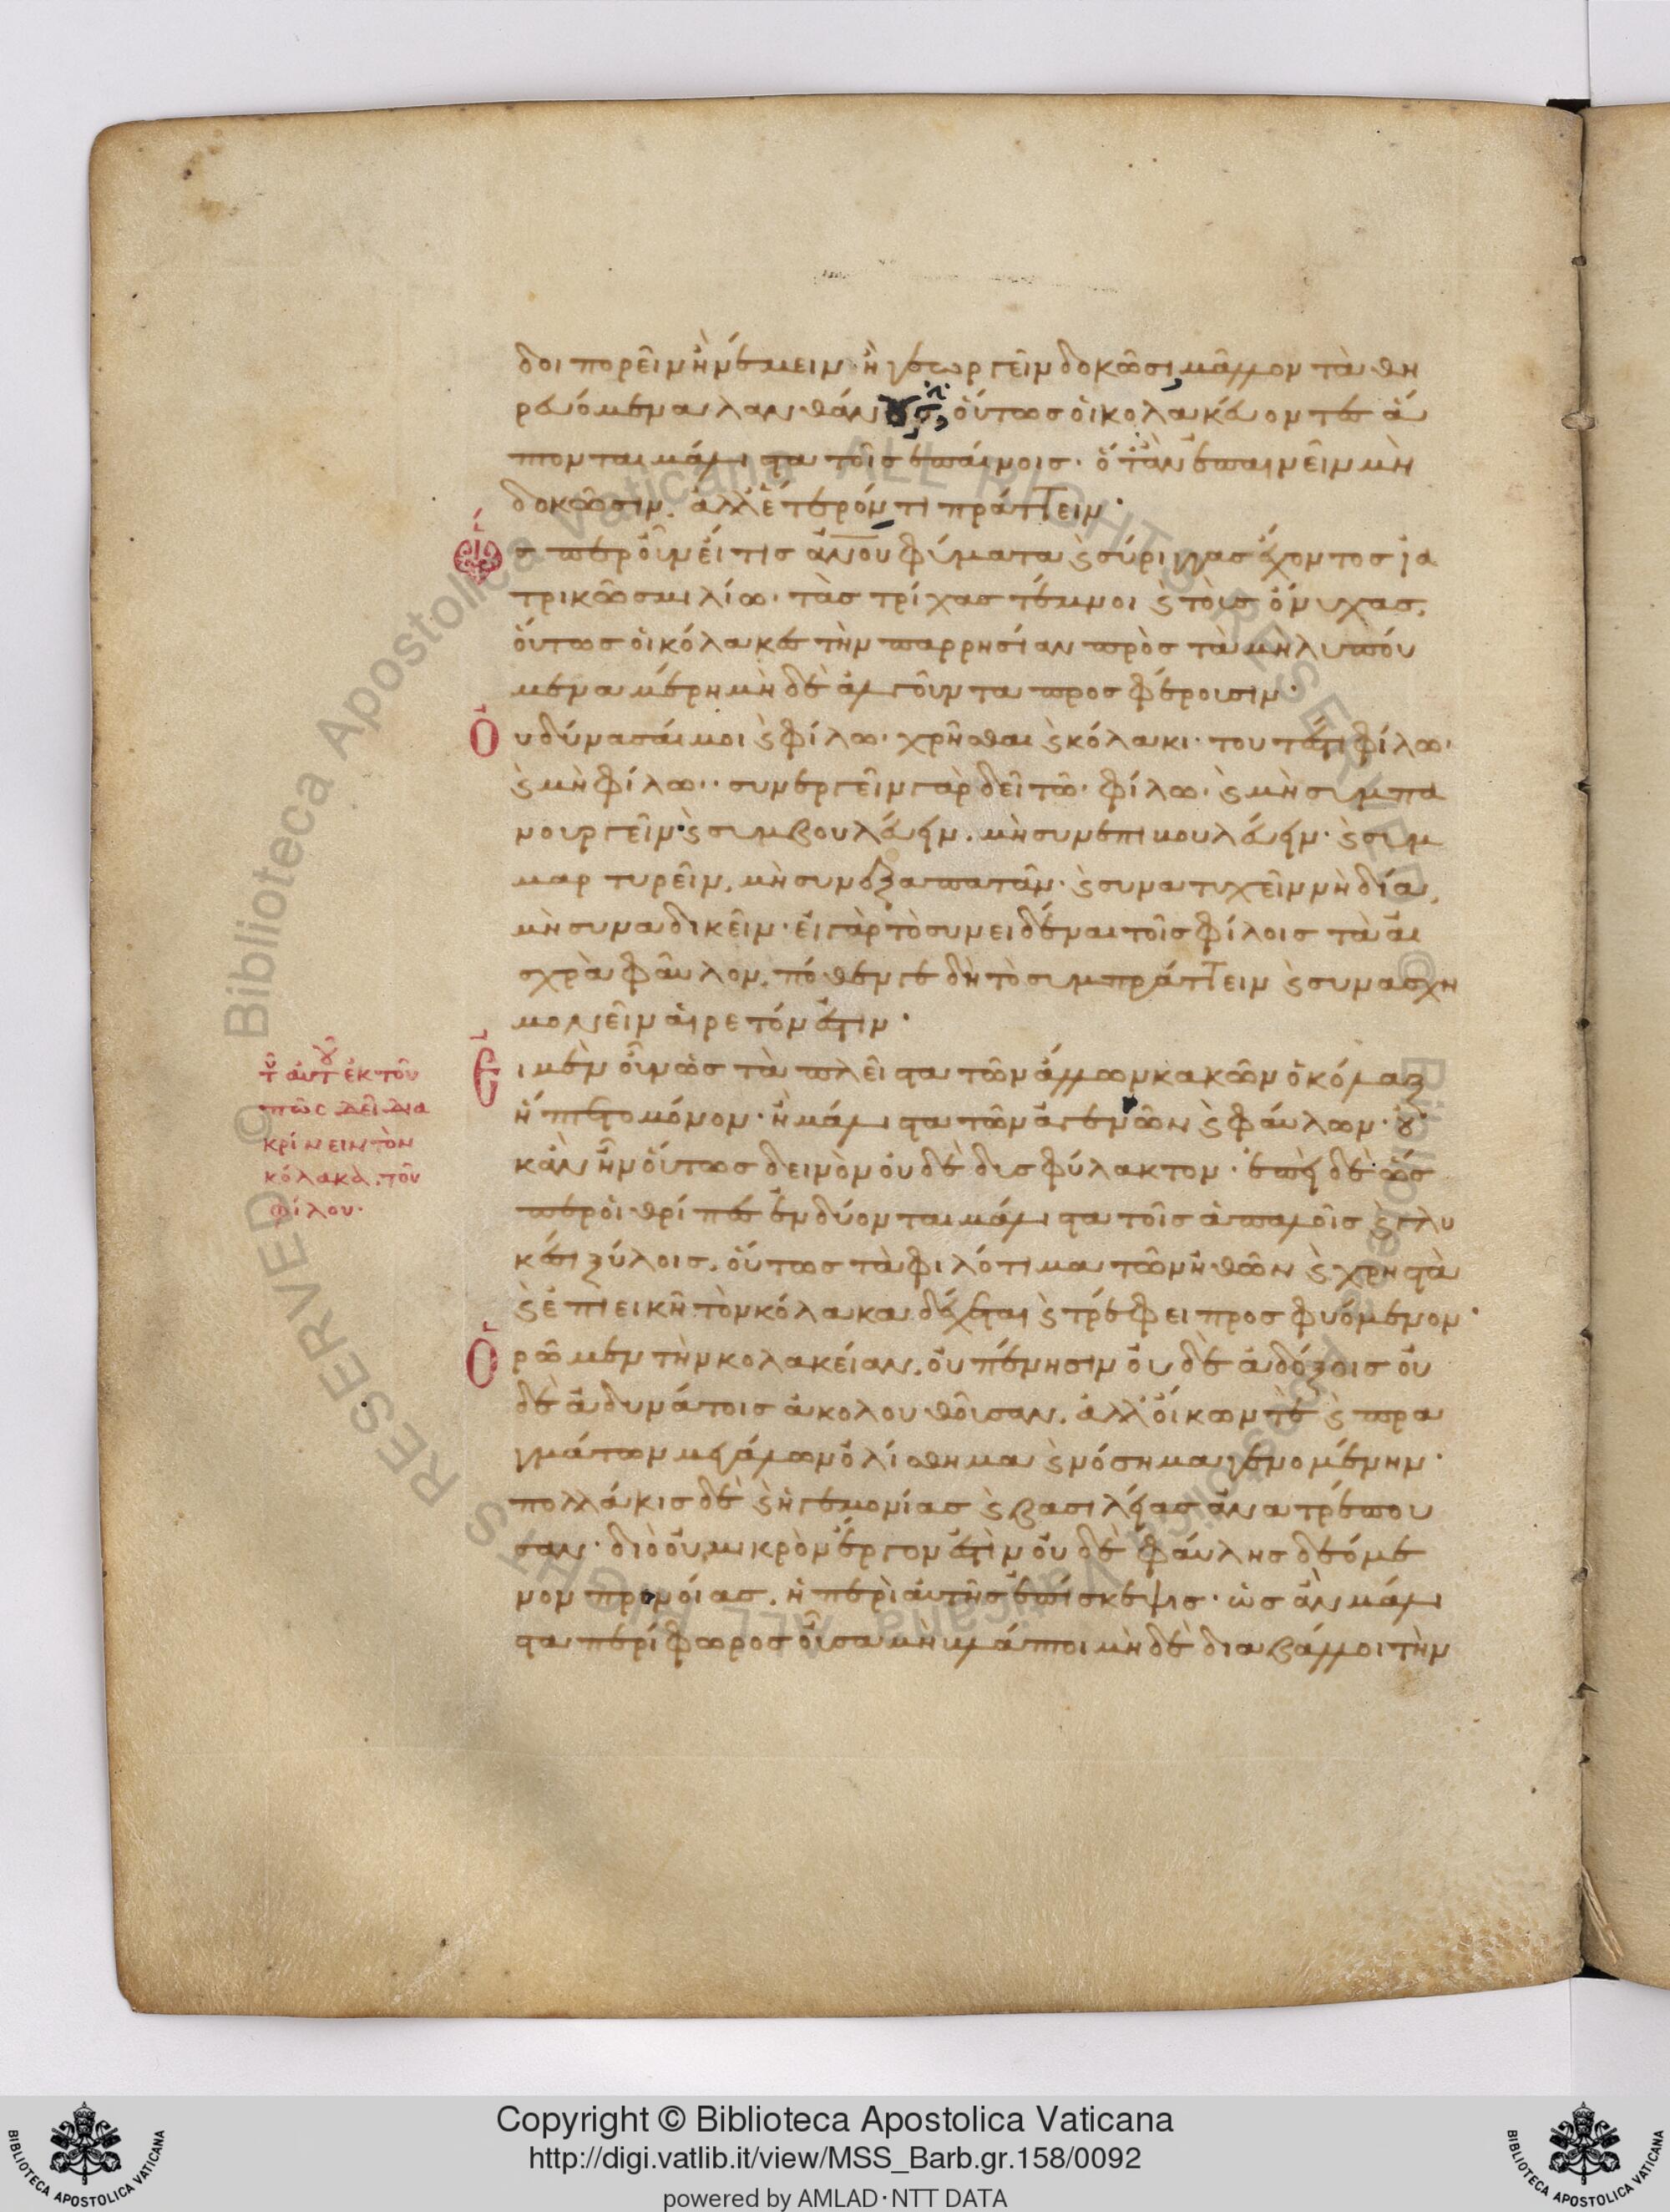 δοιπορεῖν ἢ νέμειν ἢ γεωργεῖν δοκῶσι, μᾶλλον τὰ θη
ρευόμενα λανθάνουσιν, οὕτως οἱ κολακεύοντες ἅ
πτονται μάλιστα τοῖς ἐπαίνοις· ὅταν ἐπαινεῖν μὴ
δοκῶσιν, ἀλλ' ἕτερόν τι πράττειν·
Ὥσπερ οὖν εἴ τις ἀνου φύματα ϛ σύριγγας ἔχοντος ἰα
τρικῷ σμιλίῳ· τὰς τρίχας τέμνοι ϛ τοὺς ὄνυχας,
οὕτως οἱ κόλακες τὴν παρρησίαν πρὸς τὰ μὴ λυπού
μενα μέρη μὴ δὲ ἀλγοῦντα προσφέρουσιν·
Οὐ δύνασαί μοι ϛ φίλῳ· χρῆσθαι ϛ κόλακι· τουτέστι φίλῳ·
ϛ μὴ φίλῳ·· συνεργεῖν γὰρ δεῖ τῷ· φίλῳ· ϛ μὴ συμπα
νουργεῖν· ϛ συμβουλεύειν. μὴ συνεπιβουλεύειν· ϛ συμ
μαρτυρεῖν, μὴ συνεξαπατᾶν· ϛ συνατυχεῖν μὴ δία,
μὴ συναδικεῖν· εἰ γὰρ τὸ συνειδέναι τοῖς φίλοις τὰ αἰ
σχρὰ φαῦλον, πόθεν γε δὴ τὸ συμπράττειν ϛ συνασχη
μονεῖν αἱρετόν ἐστιν·
Εἰ μὲν οὖν ὡς τὰ πλεῖστα τῶν ἄλλων κακῶν ὁ κόλαξ
ἥπτετο μόνον· ἢ μάλιστα τῶν ἀγενῶν ϛ φαύλων· οὐ
κἂν ἦν οὕτως δεινὸν οὐδὲ δισφύλακτον· ἐπεὶ δὲ ὥς
περ οἱ θρίπες ἐνδύονται μάλιστα τοῖς ἁπαλοῖς ϛ γλυ
κέσι ξύλοις, οὕτως τὰ φιλότιμα τῶν ἠθῶν ϛ χρηστὰ
ϛ ἐπιεικῆ τὸν κόλακα δέχεται ϛ τρέφει προσφυόμενον·
Ὁρῶμεν τὴν κολακείαν, οὐ πένησιν οὐδὲ ἀδόξοις οὐ
δὲ ἀδυνάτοις ἀκολουθοῦσαν, ἀλλ' οἴκων τὲ ϛ πρα
γμάτων μεγάλων ὀλίσθημα ϛ νόσημα γενομένην·
πολλάκις δὲ ϛ ἡγεμονίας ϛ βασιλείας ἀνατρέπου
σαν· διὸ οὐ μικρὸν ἔργον ἐστὶν οὐδὲ φαύλης δεόμε
νον προνοίας, ἡ περὶ αὐτῆς ἐπίσκεψις· ὡς ἂν μάλι
στα περίφωρος οὖσα μὴ βλάπτοι μὴ δὲ διαβάλλοι τὴν
τοῦ αὐτοῦ ἐκ τοῦ
πῶς δεῖ δια
κρίνειν τὸν
κόλακα. τοῦ
φίλου·
Copyright © Biblioteca Apostolica Vaticana
http://digi.vatlib.it/view/MSS_Barb.gr.158/0092
powered by AMLAD·NTT DATA
BIBLIOTECA APOSTOLICA VATICANA
BIBLIOTECA APOSTOLICA VATICANA